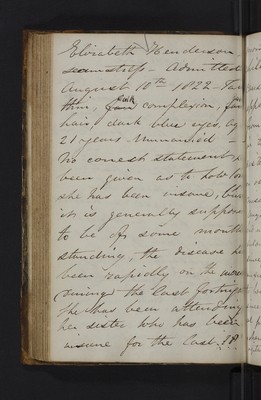 Elizabeth Henderson
seamstress - Admitted
August 10th 1822.
thin, complexion,
hair, dark blue eyes,
21 years Unmarried -
No correct statement
been given as to how
she has been insane, but
it is generally suppose
to be of some month
standing, the disease
been rapidly on the
the last fortnight
She has been attending
her sister who has been
insane for the last